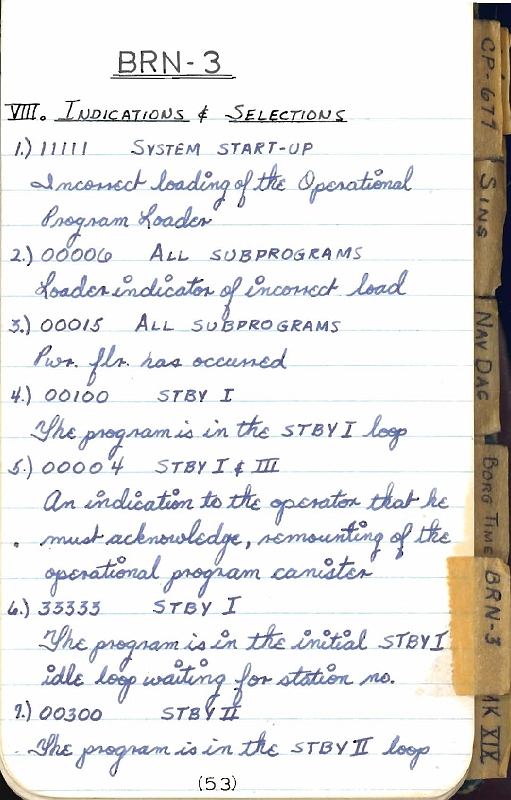 BRN-3
VIII. INDICATIONS & SELECTIONS
1.) 11111 SYSTEM START-UP
Incorrect loading of the Operational
Program Loader
2.) 00006 ALL SUBPROGRAMS
Loader indicator of incorrect load
3.) 00015 ALL SUBPROGRAMS
Pwr. flr. has occurred
4.) 00100 STBY I
The program is in the STBY I loop
5.) 00004 STBY I & III
An indication to the operator that he
must acknowledge, remounting of the
operational program canister
6.) 33333 STBY I
The program is in the initial STBY I
idle loop waiting for station no.
7.) 00300 STBY II
The program is in the STBY II loop
(53)
CP-677
SINS
NAV DAC
BORG TIME
BRN-3
MK XIX